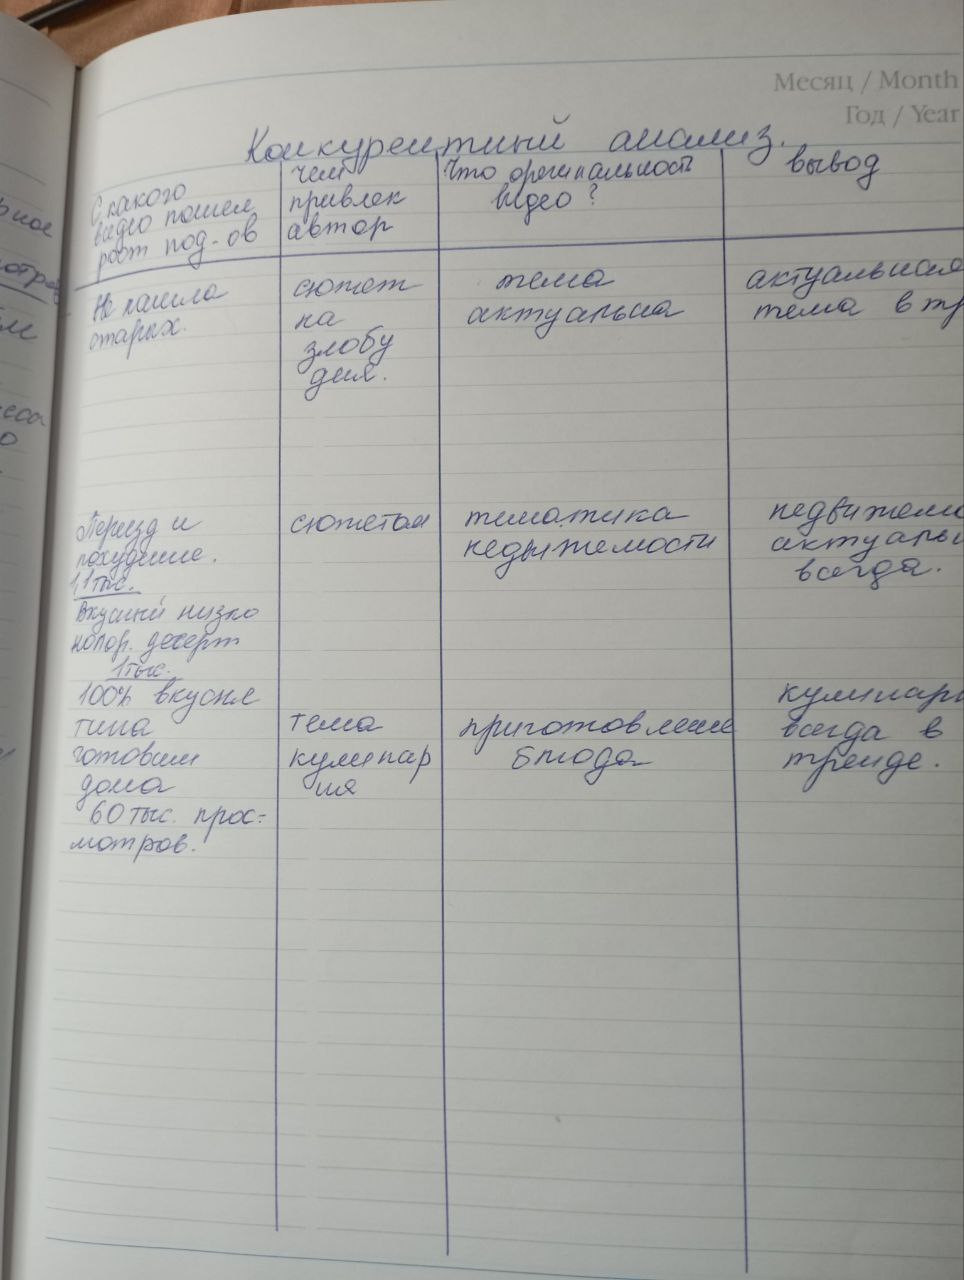 Месяц / Month
Год / Year
Конкурентный анализ.
С какого
видео пошел
рост под-ов
чем
привлек
автор
Что оригинальность
видео?
вывод
Не нашла
старых.
сюжет
на
злобу
дня.
тема
актуальна
актуальная
тема в тр
Переезд и
похудение.
1,1 тыс.
Вкусный низко
калор. десерт
1 тыс.
сюжетом
тематика
недвижемости
недвижемо
актуаль
всегда.
100% вкусня
тина
готовим
дома
60 тыс. прос-
мотров.
тема
кулинар
ия
приготовление
блюда
кулинар
всегда в
тренде.